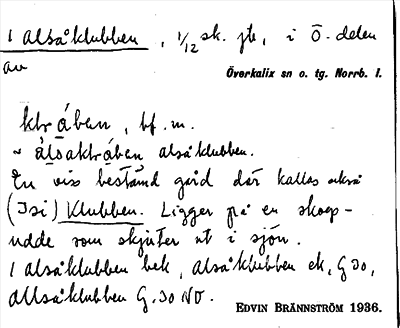 1 alsåklubben, 1/12 sk. jb, i Ö. delen
av
Överkalix sn o. tg. Norrb. l.
klråben, bf. m.
~ ålsaklråben alsåklubben.
En viss bestämd gård där kallas också
(Isi) Klubben. Ligger på en skogs-
udde som skjuter ut i sjön.
1 alsåklubben bek, alsåklubben ek, G 30,
Allsåklubben G. 30 NO.
EDVIN BRÄNNSTRÖM 1936.